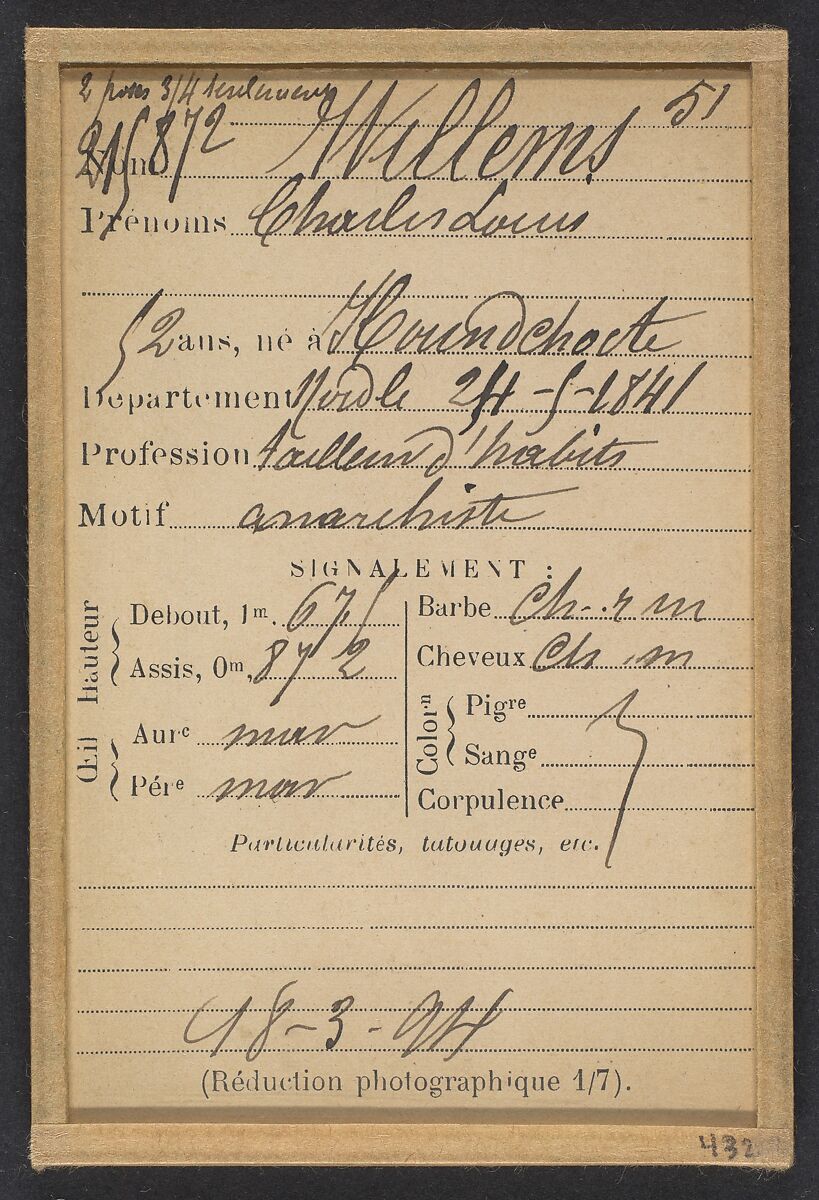 2 poses 3/4 seulement
51
215872
Nom Willems
Prénoms Charles Louis
52 ans, né à Houndchocte
Département Nord le 24-5-1841
Profession tailleur d'habits
Motif anarchiste
SIGNALEMENT :
Hauteur
Debout, 1m. 675
Assis, 0m, 872
Œil
Aurc mar
Pére mar
Barbe ch. r m
Cheveux ch. m
Colorn
Pigre
Sange
Corpulence
Particularités, tatouages, etc.
18-3-94
(Réduction photographique 1/7).
432